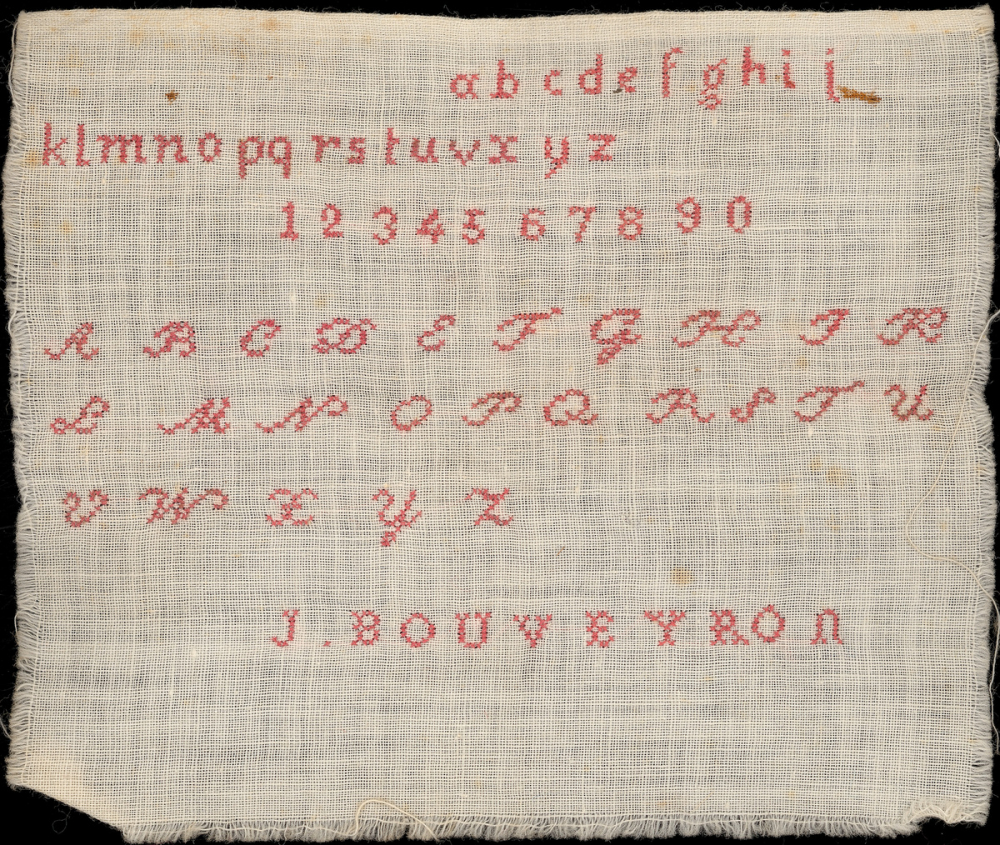 a b c d e f g h i j
k l m n o p q r s t u v x y z
1 2 3 4 5 6 7 8 9 0
A B C D E F G H I K
L M N O P Q R S T U
V W X Y Z
J. BOUVEYRON